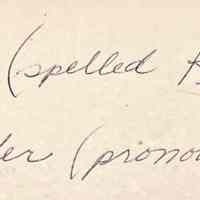 (spelled
er (prono